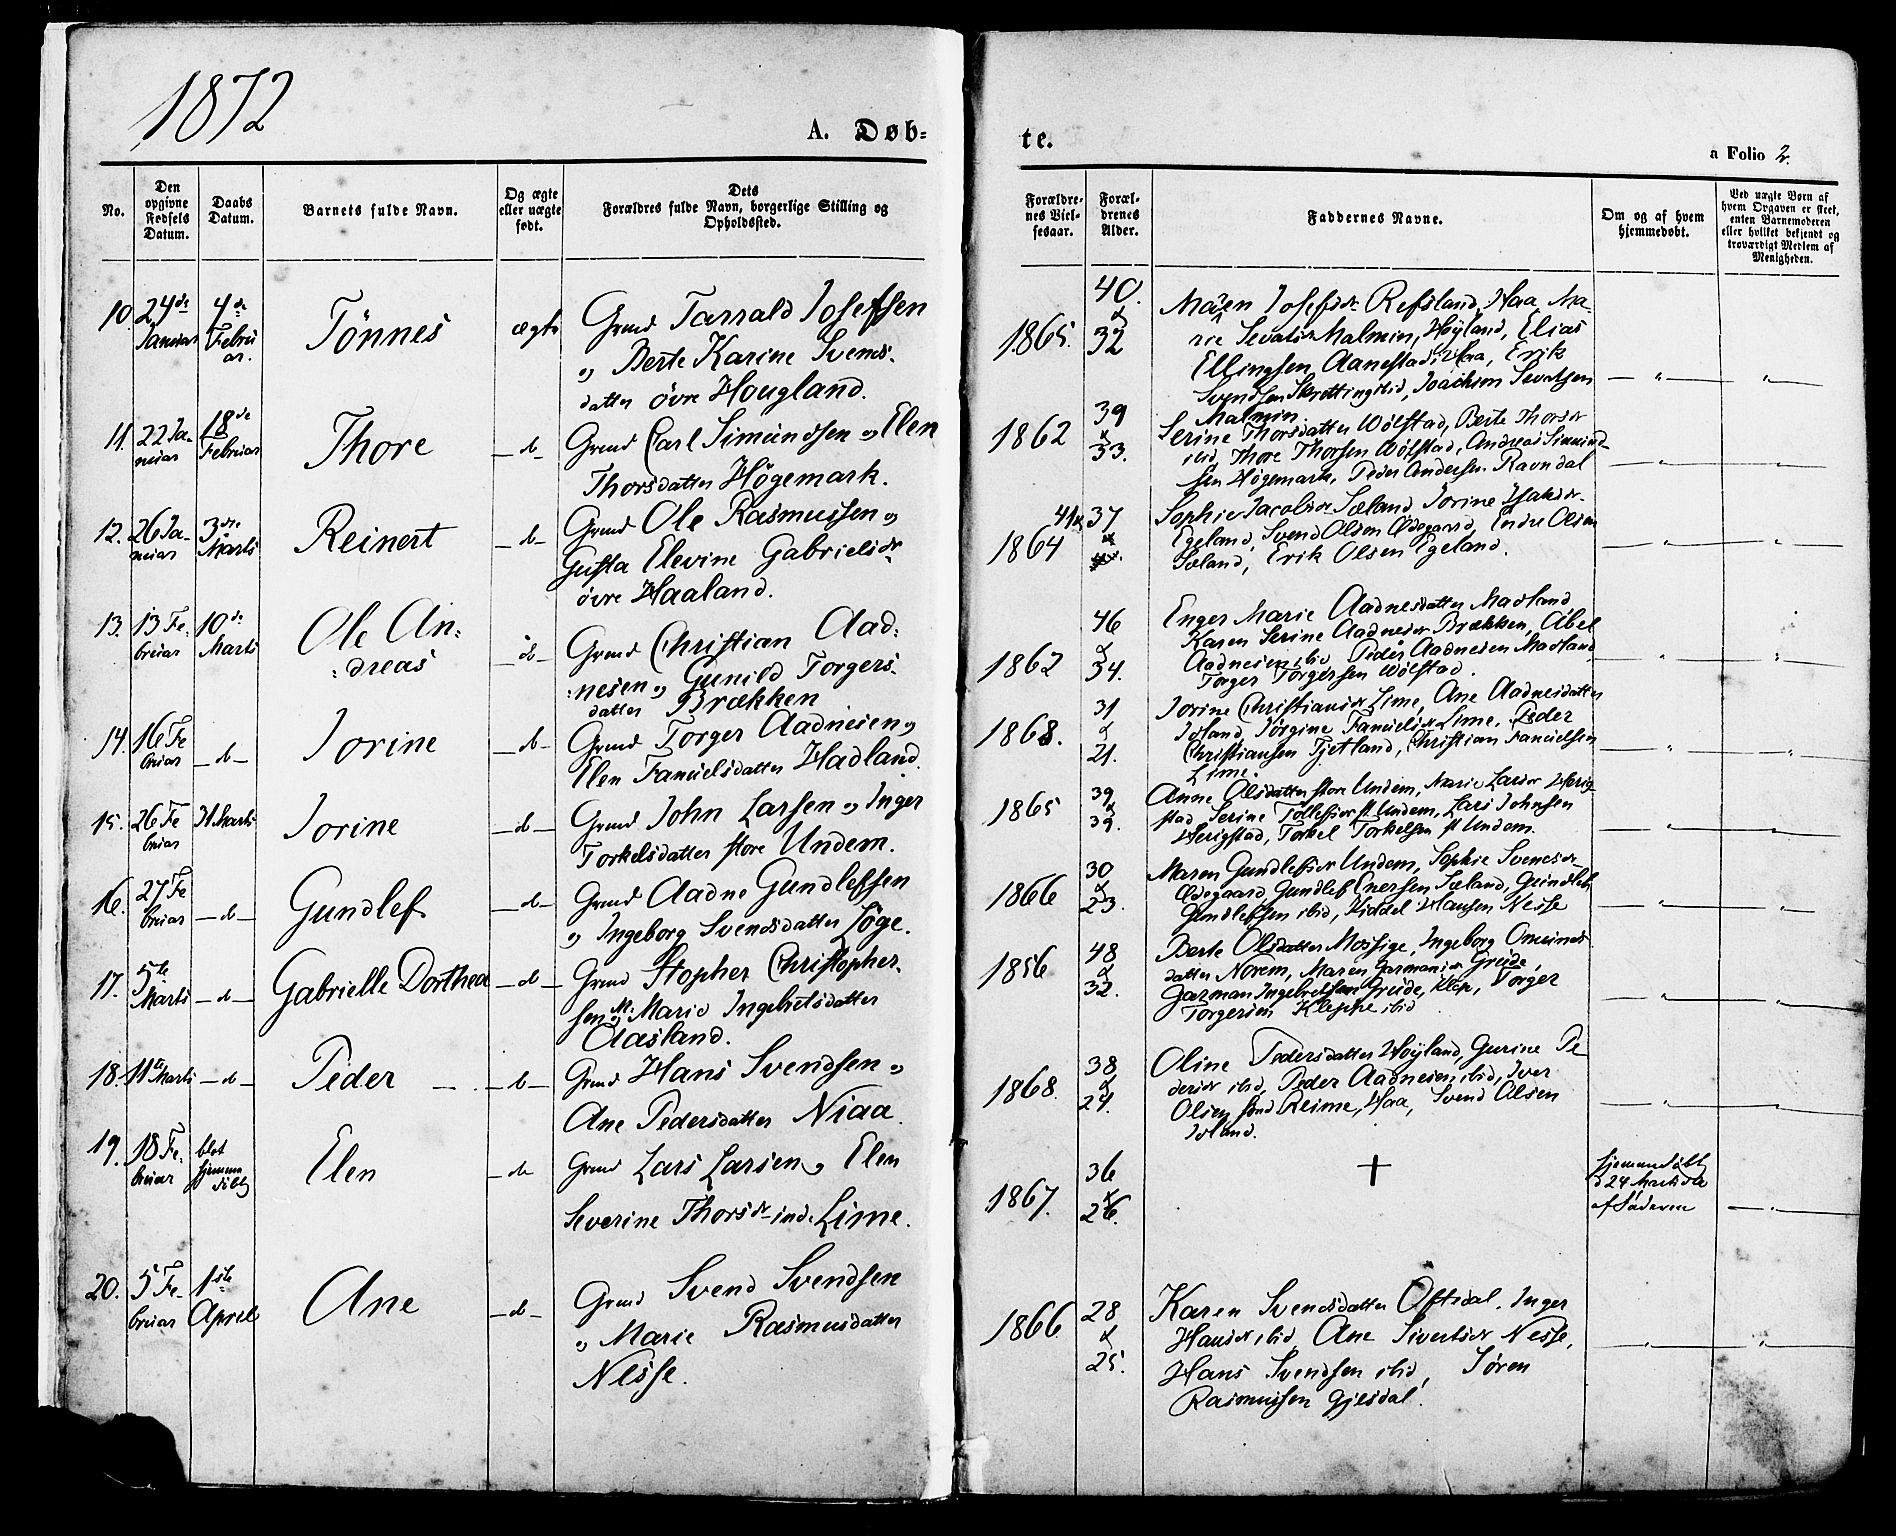 1872
A. Døb-
te.
a Folio 2.
No.
Den opgivne Fødsels Datum.
Daabs Datum.
Barnets fulde Navn.
Og ægte eller uægte født.
Dets Forældres fulde Navn, borgerlige Stilling og Opholdssted.
Forældrenes Vielsesaar.
Forældrenes Alder.
Faddernes Navne.
Om og af hvem hjemmedøbt.
Ved uægte Børn af hvem Opgaven er skeet, enten Barnemoderen eller hvilket bekjendt og troværdigt Medlem af Menigheden.
10 24de Januar 4de Februar. Tönnes ægte Grmd Tarrald Josefsen
„ Berte Karine Svends-
datter övre Hougland.
1865. 40. & 32
Maren Josefsdr Refsland, Haa, Ma-
rie Sevatsdr Malmin, Høyland, Elias
Ellingsen Aanestad, Haa, Erik
Svendsen Skrettingibid, Joachim Sevatsen
Malmin.
11. 22 Januar 18de Februar Thore _d_ Grmd Carl Simundsen „ Elen
Thorsdatter Högemark.
1862 39 & 33.
Serine Thorsdatter Wølstad, Berte Thorsdr
ibid, Thore Thorsen Wølstad, Andreas Simund-
sen Högemark, Peder Andersen Ravndal
12. 26 Januar 3die Marts Reinert _d_ Grmd Ole Rasmussen „
Gusta Elevine Gabrielsdr
övre Haaland.
1864 41 & 37
Sophie Jacobsdr Sæland, Jorine Isaksdr
Egeland, Svend Olsen Ødegaard, Endre Olsen
Sæland, Erik Olsen Egeland.
13. 13 Februar 10de Marts Ole An-
dreas _d_ Grmd Christian Aad-
nesen „ Gunild Torgers-
datter Brækken
1862 46 & 34.
Enger Marie Aadnesdatter Madland
Karen Serine Aadnesdr Brækken, Abel
Aadnesen ibid, Peder Aadnesen Madland
Torger Torgersen Wølstad.
14. 16 Februar _d_ Jorine _d_ Grmd Torger Aadnesen „
Elen Fanuelsdatter Hadland.
1868. 31 & 21.
Jorine Christiansdr Lime, Ane Aadnesdatter
Island, Jørgine Fanuelsdr Lime, Peder
Christiansen Tjetland, Christian Fanuelsen
Lime.
15. 26 Februar 31 Marts Jorine _d_ Grmd John Larsen „ Inger
Torkelsdatter store Undem.
1865 39 & 39.
Anne Olsdatter store Undem, Marie Larsdr Herig-
stad, Serine Tollefsdr st Undem, Lars Johnsen
Herigstad, Torkel Torkelsen st Undem.
16. 27 Februar _d_ Gundlef _d_ Grmd Aadne Gundlefsen
„ Ingeborg Svendsdatter Søge.
1866 30 & 23.
Maren Gundlefsdr Undem, Sophie Svendsdr
Ødegaard, Gundlef Enersen Sæland, Gundlef
Gundlefsen ibid, Kiddel Hansen Nesse
17. 5te Marts _d_ Gabrielle Dorthea _d_ Grmd Stopher Christopher-
sen „ M: Marie Ingebretsdatter
Aasland.
1856 48 & 32.
Berte Olsdatter Mossige, Ingeborg Omunds
datter Norem, Maren Garmansdr Greide,
Garman Ingebretsen Greide, Klep, Torger
Torgersen Kleppe ibid
18. 11te Marts _d_ Peder _d_ Grmd Hans Svendsen „
Ane Pedersdatter Niaa.
1868. 38 & 24.
Oline Pedersdatter Høyland, Gurine Pe-
dersdr ibid, Peder Aadnesen ibid, Iver
Olsen Reime, Haa, Svend Olsen
Island.
19. 18 Februar blot hjemmedöbt Elen _d_ Grmd Lars Larsen „ Elen
Severine Thorsdr ind. Lime.
1867. 36 & 26.
+
hjemmedöbt
d 24 Marts
af Faderen
20. 5 Februar 1ste April Ane _d_ Grmd Svend Svendsen
„ Marie Rasmusdatter
Nesse.
1866 28 & 25.
Karen Svendsdatter Oftedal, Inger
Hansdr ibid, Ane Sivertsdr Nesse,
Hans Svendsen ibid, Sören
Rasmussen Gjesdal.